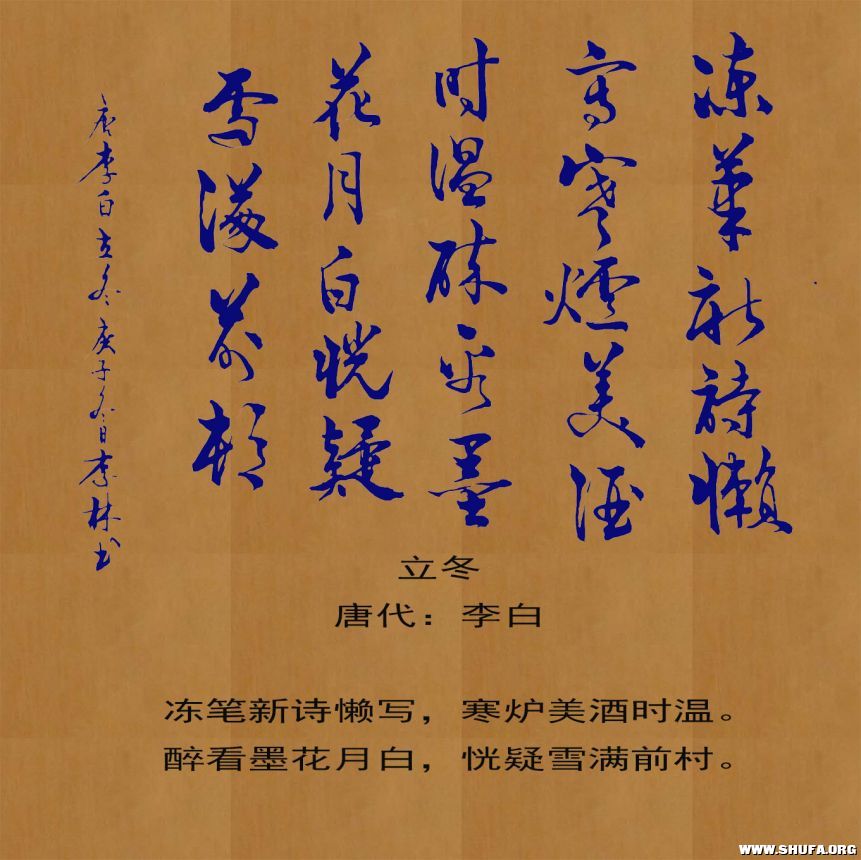 凍筆新詩懶
寫寒爐美酒
时温醉看墨
花月白恍疑
雪满前村
唐李白立冬庚子冬日李林书
立冬
唐代：李白
冻笔新诗懒写，寒炉美酒时温。
醉看墨花月白，恍疑雪满前村。
WWW.SHUFA.ORG